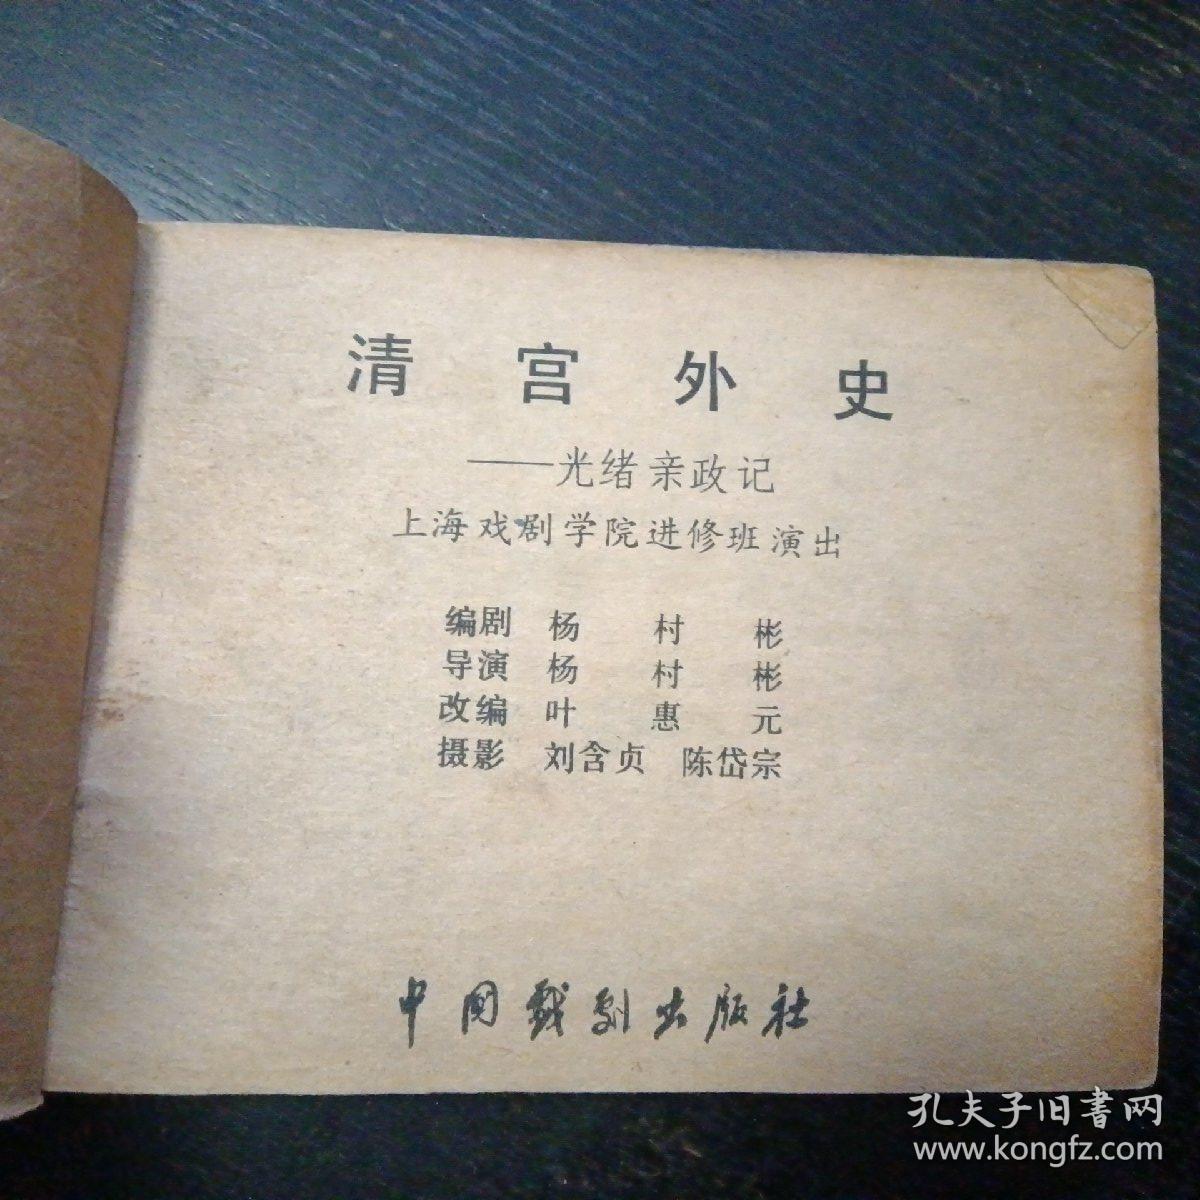 清宫外史
——光绪亲政记
上海戏剧学院进修班演出
编剧 杨村彬
导演 杨村彬
改编 叶惠元
摄影 刘含贞 陈岱宗
中国戏剧出版社
孔夫子旧書网
www.kongfz.com